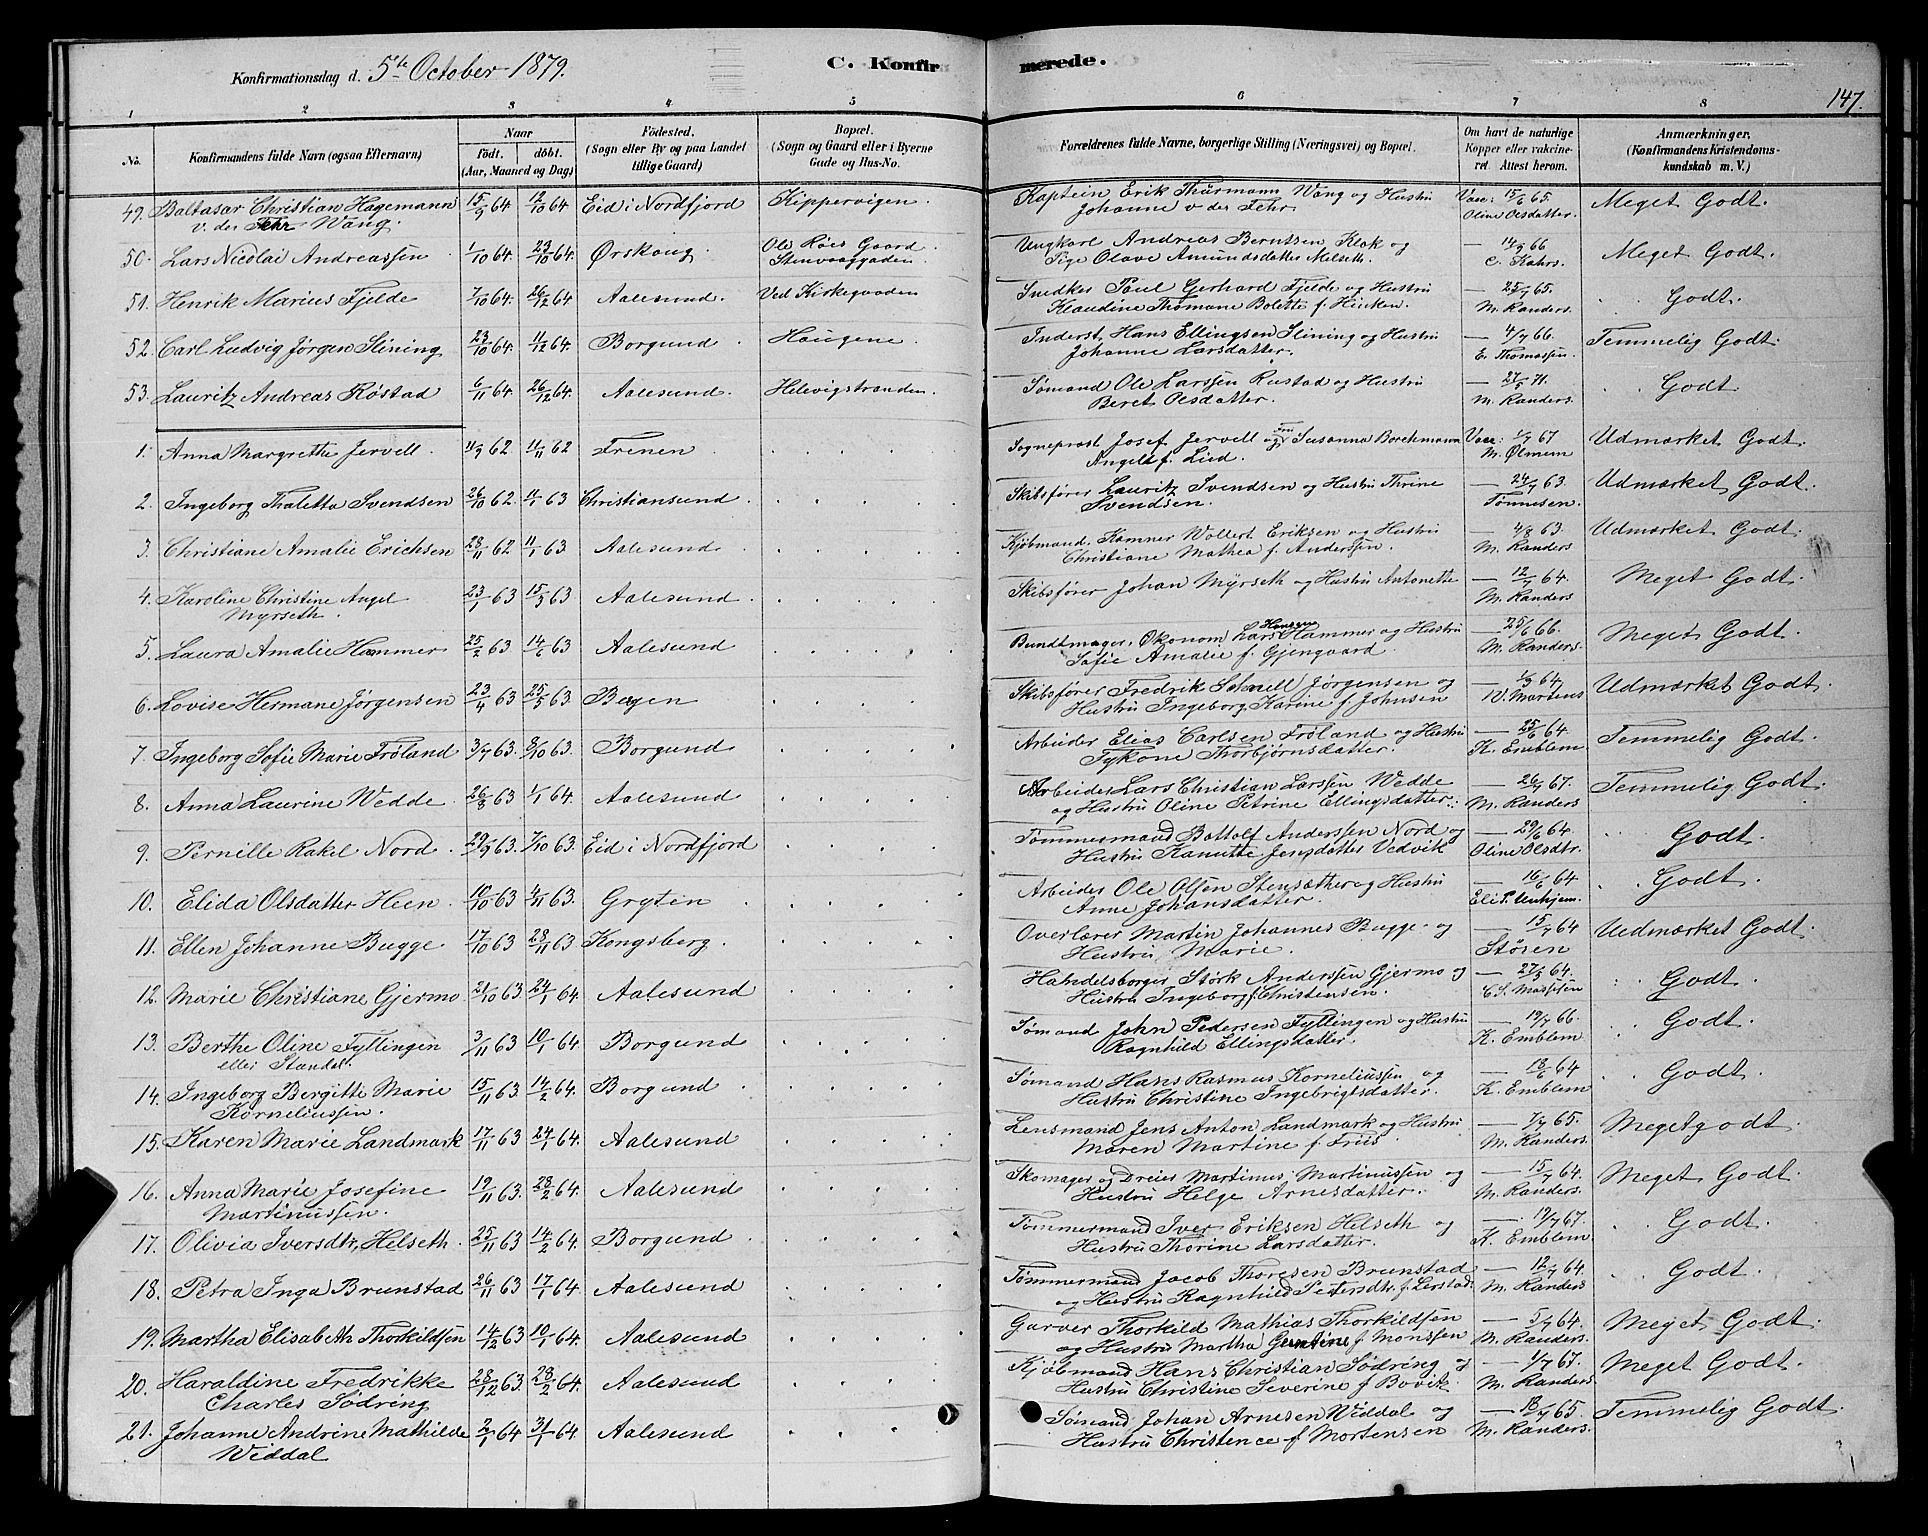 Konfirmationsdag d. 5te October 1879.
C. Konfirmerede.
147.
1 2 3 4 5 6 7 8
No.
Konfirmandens fulde Navn (ogsaa Efternavn)
Naar
født. døbt.
(Aar, Maaned og Dag)
Fødested.
(Sogn eller By og paa Landet tillige Gaard)
Bopæl.
(Sogn og Gaard eller i Byerne Gade og Hus-No.
Forældrenes fulde Navne, borgerlige Stilling (Næringsvei) og Bopæl.
Om havt de naturlige Kopper eller vakcineret. Attest herom.
Anmærkninger.
(Konfirmandens Kristendomskundskab m. V.)
49. Baltasar Christian Hagemann 15/9 64 12/10 64 Eid i Nordfjord Kippervigen Kaptein Erik Thürmann Wang og Hustru Vac: 15/6 65 Meget Godt.
v. der Fehr Wang. Johanne v der Fehr. Oline Olsdatter.
50. Lars Nicolai Andreassen 1/10 64. 23/10 64. Ørskoug. Ole Røes Gaard Ungkarl Andreas Berntsen Klok og — 14/9 66 Meget Godt.
Stenvaaggaden. Pige Olave Amundsdatter Melseth. C. Kahrs.
51. Henrik Marius Fjelde 7/10 64. 26/12 64 Aalesund. Ved Kirkegaaden Snedker Poul Gerhard Fjelde og Hustru — 25/7 65. Godt.
Klaudine Thomane Bolette f. Hinken. M. Randers.
52. Carl Ludvig Jørgen Slining 23/10 64. 11/12 64. Borgund Haugene. Inderst Hans Ellingsen Slining og Hustru — 4/7 66. Temmelig Godt.
Johanne Larsdatter. E. Thomassen.
53. Lauritz Andreas Røstad 6/11 64 26/12 64. Aalesund. Helevigstranden. Sømand Ole Larssen Rustad og Hustru — 27/5 71. Godt.
Beret Olsdatter. M. Randers.
1. Anna Margrethe Jervell. 4/9 62 11/11 62 Frenen Sogneprest Josef Jervell og Fru Susanna Borchmann Vac: 1/7 67 Udmærket Godt.
Angell f. Lied. M. Ølmem
2. Ingeborg Thaletta Svendsen 26/10 62. 11/1 63 Christiansund Skibsfører Lauritz Svendsen og Hustru Thrine — 24/7 63. Udmærket Godt.
Svendsen. Tønnesen.
3. Christiane Amalie Erichsen 28/11 62 11/1 63 Aalesund Kjøbmand, Kæmner Wollert Eriksen og Hustru — 4/8 63. Udmærket Godt.
Christiane Mathea f. Andersen. M. Randers
4. Karoline Christine Angel 23/1 63 15/3 63 Aalesund Skibsfører Johan Myrseth og Hustru Antonette — 12/7 64. Meget Godt.
Myrseth. M. Randers
5. Laura Amalie Hammer 25/2 63 14/6 63 Aalesund Bundtmager, Økonom Lars Hansen Hammer og Hustru — 25/6 66. Meget Godt.
Sofie Amalie f. Gjengaard. M. Randers.
6. Lovise Hermane Jørgensen 23/4 63 25/5 63 Begen Skibsfører Fredrik Schnell Jørgensen og — 1/9 64, Udmærket Godt.
Hustru Ingeborg Karine f. Johnsen W. Martens
7. Ingeborg Sofie Marie Frøland 3/7 63. 8/10 63. Borgund Arbeider Elias Carlsen Frøland og Hustru — 25/6 64 Temmelig Godt.
Tykone Thorbjørnsdatter. K. Emblem
8. Anna Laurine Wedde. 26/8 63 1/1 64. Aalesund Arbeider Lars Christian Larssen Wedde — 26/7 67. Temmelig Godt.
og Hustru Oline Petrine Ellingsdatter. M. Randers
9. Pernille Rakel Nord. 29/9 63. 7/10 63. Eid i Nordfjord Tømmermand Bottolf Anderssen Nord og — 29/6 64 Godt.
Hustru Kanutte Jensdatter Vedvik Oline Olsdtr.
10. Elida Olsdatter Heen 10/10 63 4/11 63. Gryten Arbeider Ole Olsen Stensæther og Hustru — 16/6 64 Godt.
Anne Johansdatter. Eli P. Unhjem.
11. Ellen Johanne Bugge. 17/10 63 28/11 63 Kongsberg. Overlærer Martin Johannes Bugge og — 15/7 64 Uedmærket Godt.
Hustru Marie. Støren
12. Marie Christiane Gjermo 21/10 63. 24/1 64. Aalesund Handelsborger Stork Anderssen Gjermo og — 27/5 64. Godt.
Hustru Ingeborg f. Christensen. C S. Massesen
13. Berthe Oline Fyllingen 3/11 63 10/1 64 Borgund Sømand John Pedersen Fyllingen og Hustru — 19/7 66. Godt.
eller Standal. Ragnhild Ellingsdatter. K. Emblem.
14. Ingeborg Bergitte Marie 15/11 63. 14/2 64. Borgund Sømand Hans Rasmus Korneliussen og — 18/6 64 Godt.
Korneliussen. Hustru Christine Ingebrigtsdatter. K. Emblem
15. Karen Marie Landmark 17/11 63 24/1 64. Aalesund Lensmand Jens Anton Landmark og Hustru — 7/7 65. Meget godt.
Maren Martine f. Friis. M. Randers.
16. Anna Marie Josefine 19/11 63. 28/2 64. Aalesund Skomager og Dreier Martinus Martinussen og — 15/7 64. Meget Godt.
Martinussen. Hustru Helge Arnesdatter. M. Randers.
17. Olivia Iversdtr. Helseth. 25/11 63 14/2 64. Borgund Tømmermand Iver Eriksen Helseth og — 19/7 67. Godt.
Hustru Thorine Larsdatter. K. Emblem.
18. Petra Inga Brunstad 26/11 63 17/1 64. Aalesund Tømmermand Jacob Thoresen Brunstad — 12/7 64. Godt.
og Hustru Ragnhild Petersdtr. f. Lerstad. M. Randers
19. Martha Elisabeth Thorkildsen 14/12 63 10/1 64 Aalesund Garver Thorkild Mathias Thorkildsen — 5/7 64. Meget Godt.
og Hustru Martha Guntine f Monssen M. Randers.
20. Haraldine Fredrikke 28/12 63. 28/2 64. Aalesund Kjøbmand Hans Christian Sødring og — 1/7 67. Meget Godt.
Charles Sødring Hustru Christine Severine f Bovik. M. Randers
21. Johanne Andrine Mathilde 2/1 64 31/1 64. Aalesund Sømand Johan Arnesen Widdal og — 18/7 65. Temmelig Godt.
Widdal Hustru Christence f Mortensen M. Randers.